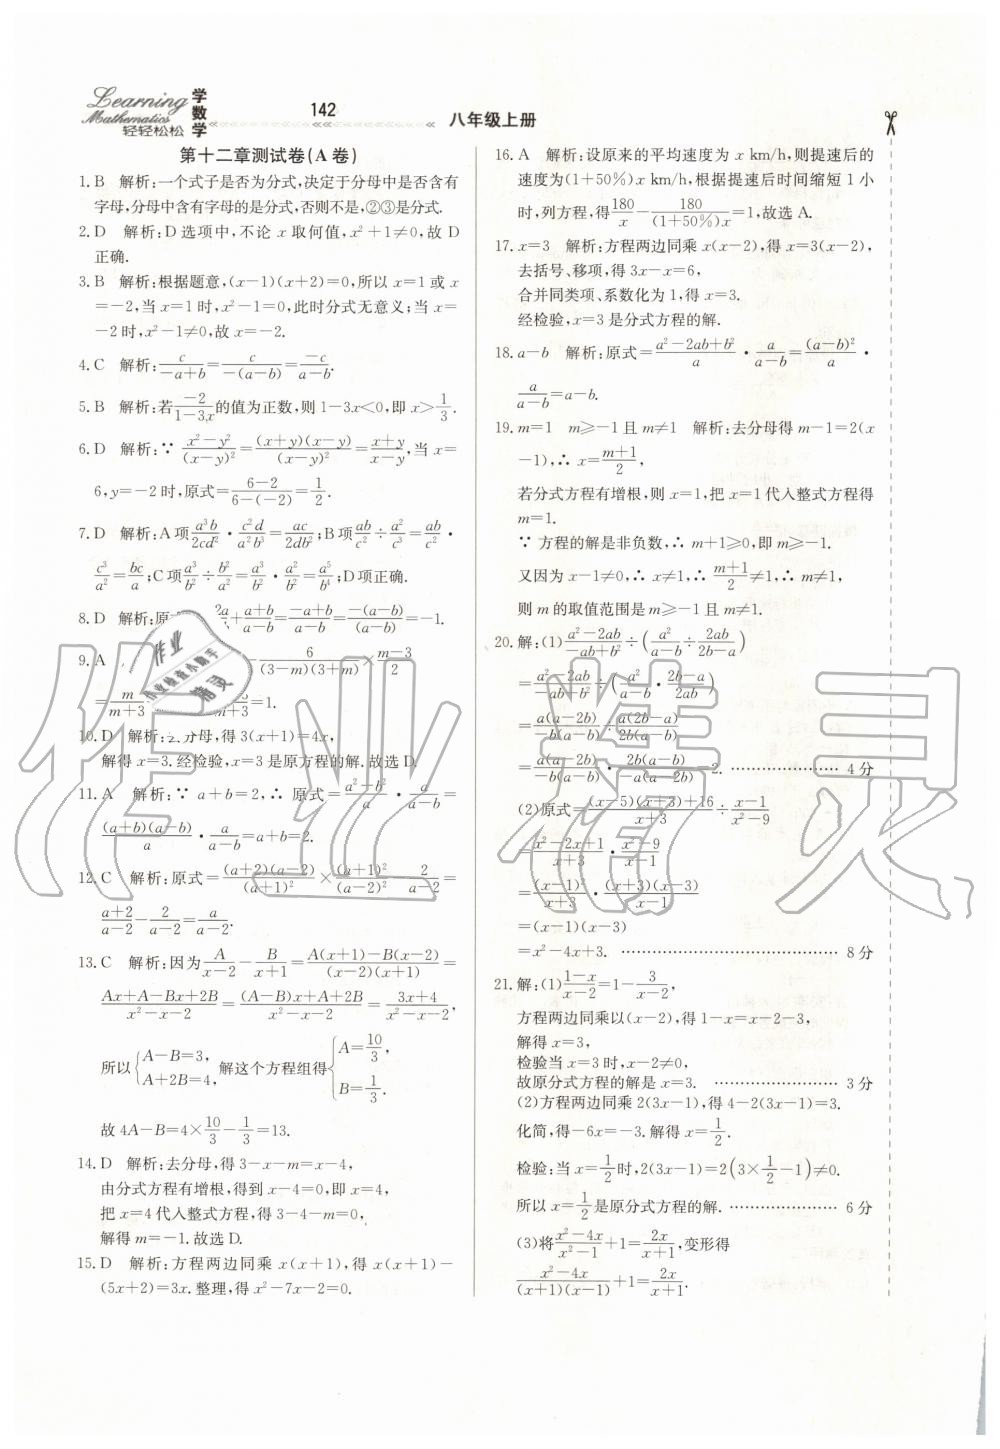 Learning
Mathematics
轻轻松松
学数学
142
八年级上册
第十二章测试卷(A卷)
1. B 解析:一个式子是否为分式,决定于分母中是否含有
字母,分母中含有字母的是分式,否则不是,②③是分式.
2. D 解析:D选项中,不论 x 取何值,x²+1≠0,故 D
正确.
3. B 解析:根据题意,(x-1)(x+2)=0,所以 x=1 或 x
=-2,当 x=1 时,x²-1=0,此时分式无意义;当 x=
-2时,x²-1≠0,故 x=-2.
4. C 解析:c/(-a+b)=c/(-(a-b))=(-c)/(a-b).
5. B 解析:若(-2)/(1-3x)的值为正数,则 1-3x<0,即 x>1/3.
6. D 解析:∵ (x²-y²)/(x-y)²=(x+y)(x-y)/(x-y)²=(x+y)/(x-y),当 x=
6,y=-2时,原式=(6-2)/(6-(-2))=1/2.
7. D 解析:A项 a³b/2cd²·c²d/a²b³=ac/2db²;B项 ab/c²÷a²/c³=ab/c²·
c³/a²=bc/a;C项 a³/b²÷b²/a²=a³/b²·a²/b²=a⁵/b⁴;D项正确.
8. D 解析:原 2a +(a+b)/(a-b)=(-a+b)/(a-b)=-(a-b)/(a-b)=-1.
9. A -6/((3-m)(3+m))×(m-3)/2
=m/(m+3) =1.
10. D 解析: 分母,得 3(x+1)=4x,
解得 x=3.经检验,x=3 是原方程的解.故选 D.
11. A 解析:∵ a+b=2,∴ 原式=(a²-b²)/a·a/(a-b)=
(a+b)(a-b)/a·a/(a-b)=a+b=2.
12. C 解析:原式=(a+2)(a-2)/(a+1)²×(a+1)²/(a-2)²-2/(a-2)=
(a+2)/(a-2)-2/(a-2)=a/(a-2).
13. C 解析:因为 A/(x-2)-B/(x+1)=(A(x+1)-B(x-2))/((x-2)(x+1))=
(Ax+A-Bx+2B)/(x²-x-2)=((A-B)x+A+2B)/(x²-x-2)=(3x+4)/(x²-x-2),
所以{A-B=3, A+2B=4, 解这个方程组得{A=10/3, B=1/3.
故 4A-B=4×10/3-1/3=13.
14. D 解析:去分母,得 3-x-m=x-4,
由分式方程有增根,得到 x-4=0,即 x=4,
把 x=4代入整式方程,得 3-4-m=0,
解得 m=-1.故选 D.
15. D 解析:方程两边同乘 x(x+1),得 x(x+1)-
(5x+2)=3x.整理,得 x²-7x-2=0.
16. A 解析:设原来的平均速度为 x km/h,则提速后的
速度为(1+50%)x km/h,根据提速后时间缩短 1 小
时,列方程,得 180/x-180/((1+50%)x)=1,故选 A.
17. x=3 解析:方程两边同乘 x(x-2),得 x=3(x-2),
去括号、移项,得 3x-x=6,
合并同类项、系数化为 1,得 x=3.
经检验,x=3 是分式方程的解.
18. a-b 解析:原式=(a²-2ab+b²)/a·a/(a-b)=(a-b)²/a·
a/(a-b)=a-b.
19. m=1 m≥-1 且 m≠1 解析:去分母得 m-1=2(x
-1),∴ x=(m+1)/2,
若分式方程有增根,则 x=1,把 x=1代入整式方程得
m=1.
∵ 方程的解是非负数,∴ m+1≥0,即 m≥-1.
又因为 x-1≠0,∴ x≠1,∴ (m+1)/2≠1,∴ m≠1,
则 m 的取值范围是 m≥-1 且 m≠1.
20. 解:(1)(a²-2ab)/(-ab+b²)÷(a²/(a-b)÷2ab/(2b-a))
=(a²-2ab)/(-ab+b²)÷(a²/(a-b)·(2b-a)/2ab)
=a(a-2b)/(-b(a-b))÷a(2b-a)/(2b(a-b))
=a(a-2b)/(-b(a-b))·2b(a-b)/(-a(a-2b))=2. …………………… 4 分
(2)原式=((x-5)(x+3)+16)/(x+3)÷(x-1)/(x²-9)
=(x²-2x+1)/(x+3)·(x²-9)/(x-1)
=(x-1)²/(x+3)·(x+3)(x-3)/(x-1)
=(x-1)(x-3)
=x²-4x+3. …………………… 8 分
21. 解:(1)(1-x)/(x-2)=1-3/(x-2),
方程两边同乘以(x-2),得 1-x=x-2-3,
解得 x=3,
检验当 x=3 时,x-2≠0,
故原分式方程的解是 x=3. …………………… 3 分
(2)方程两边同乘 2(3x-1),得 4-2(3x-1)=3.
化简,得-6x=-3.解得 x=1/2.
检验:当 x=1/2时,2(3x-1)=2(3×1/2-1)≠0.
所以 x=1/2是原分式方程的解. …………………… 6 分
(3)将(x²-4x)/(x²-1)+1=2x/(x+1),变形得
(x²-4x)/((x+1)(x-1))+1=2x/(x+1).
作业精灵
作业
作业检查小助手
精灵